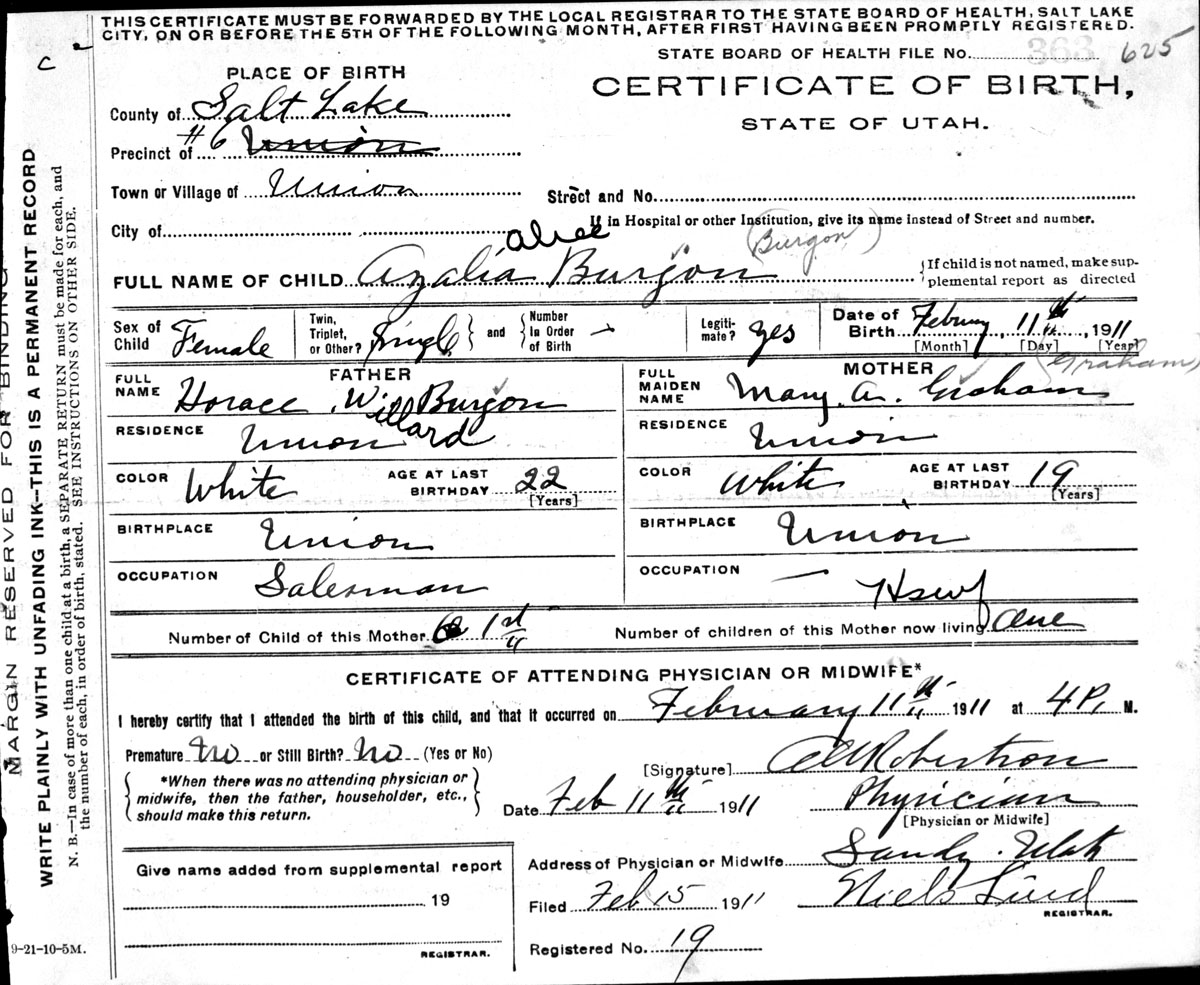 THIS CERTIFICATE MUST BE FORWARDED BY THE LOCAL REGISTRAR TO THE STATE BOARD OF HEALTH, SALT LAKE
CITY, ON OR BEFORE THE 5TH OF THE FOLLOWING MONTH, AFTER FIRST HAVING BEEN PROMPTLY REGISTERED.
STATE BOARD OF HEALTH FILE No. 363 625
C
PLACE OF BIRTH
CERTIFICATE OF BIRTH,
STATE OF UTAH.
County of Salt Lake
Precinct of #6 Union
Town or Village of Union
Street and No.
If in Hospital or other Institution, give its name instead of Street and number.
City of
Alice (Burgon)
FULL NAME OF CHILD Azalia Burgon
{If child is not named, make sup-
plemental report as directed
Sex of Child Female
Twin, Triplet, or Other? Single } and { Number In Order of Birth
Legiti-mate? yes
Date of Birth February 11th, 1911
[Month] [Day] [Year]
FATHER
MOTHER (Graham)
FULL NAME Horace Willard Burgon
FULL MAIDEN NAME Mary A. Graham
RESIDENCE Union
RESIDENCE Union
COLOR White AGE AT LAST BIRTHDAY 22 [Years]
COLOR White AGE AT LAST BIRTHDAY 19 [Years]
BIRTHPLACE Union
BIRTHPLACE Union
OCCUPATION Salesman
OCCUPATION — Hswf
Number of Child of this Mother 1st
Number of children of this Mother now living One
CERTIFICATE OF ATTENDING PHYSICIAN OR MIDWIFE*
I hereby certify that I attended the birth of this child, and that it occurred on February 11th 1911 at 4 P. M.
Premature No or Still Birth? No (Yes or No)
[Signature] Robertson
*When there was no attending physician or
midwife, then the father, householder, etc.,
should make this return.
Date Feb 11th 1911 Physician
[Physician or Midwife]
Give name added from supplemental report
19
REGISTRAR.
Address of Physician or Midwife Sandy Utah
Filed Feb 15 1911 Niels Lind
REGISTRAR.
Registered No. 19
9-21-10-5M.
MARGIN RESERVED FOR BINDING
WRITE PLAINLY WITH UNFADING INK—THIS IS A PERMANENT RECORD
N. B.—In case of more than one child at a birth, a SEPARATE RETURN must be made for each, and
the number of each, in order of birth, stated. SEE INSTRUCTIONS ON OTHER SIDE.